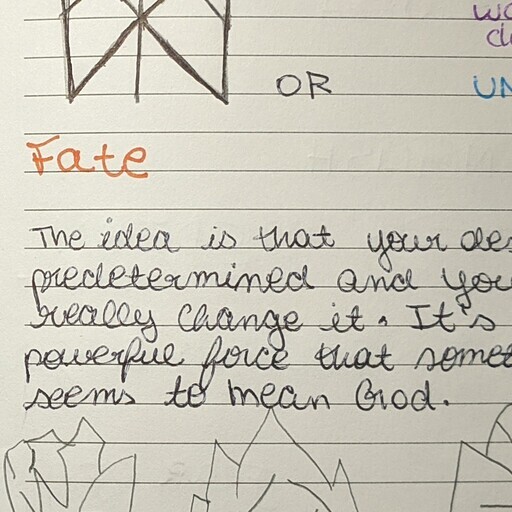 OR
Fate
The idea is that your
predetermined and
really change it. It's
powerful force that
seems to mean God.